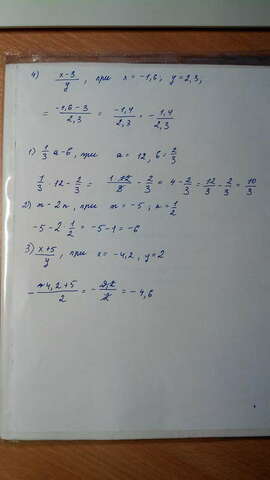 4) x-3/y, при x=-1,6, y=2,3,
= -1,6-3/2,3 = -1,4/2,3 = -1,4/2,3
1) 1/3 a-b, при a=12, b=2/3
1/3·12-2/3 = 1·12/3-2/3 = 4-2/3 = 12/3-2/3 = 10/3
2) m-2n, при m=-5; n=1/2
-5-2·1/2 = -5-1=-6
3) x+5/y, при x=-4,2, y=2
-4,2+5/2 = -9,2/2 = -4,6